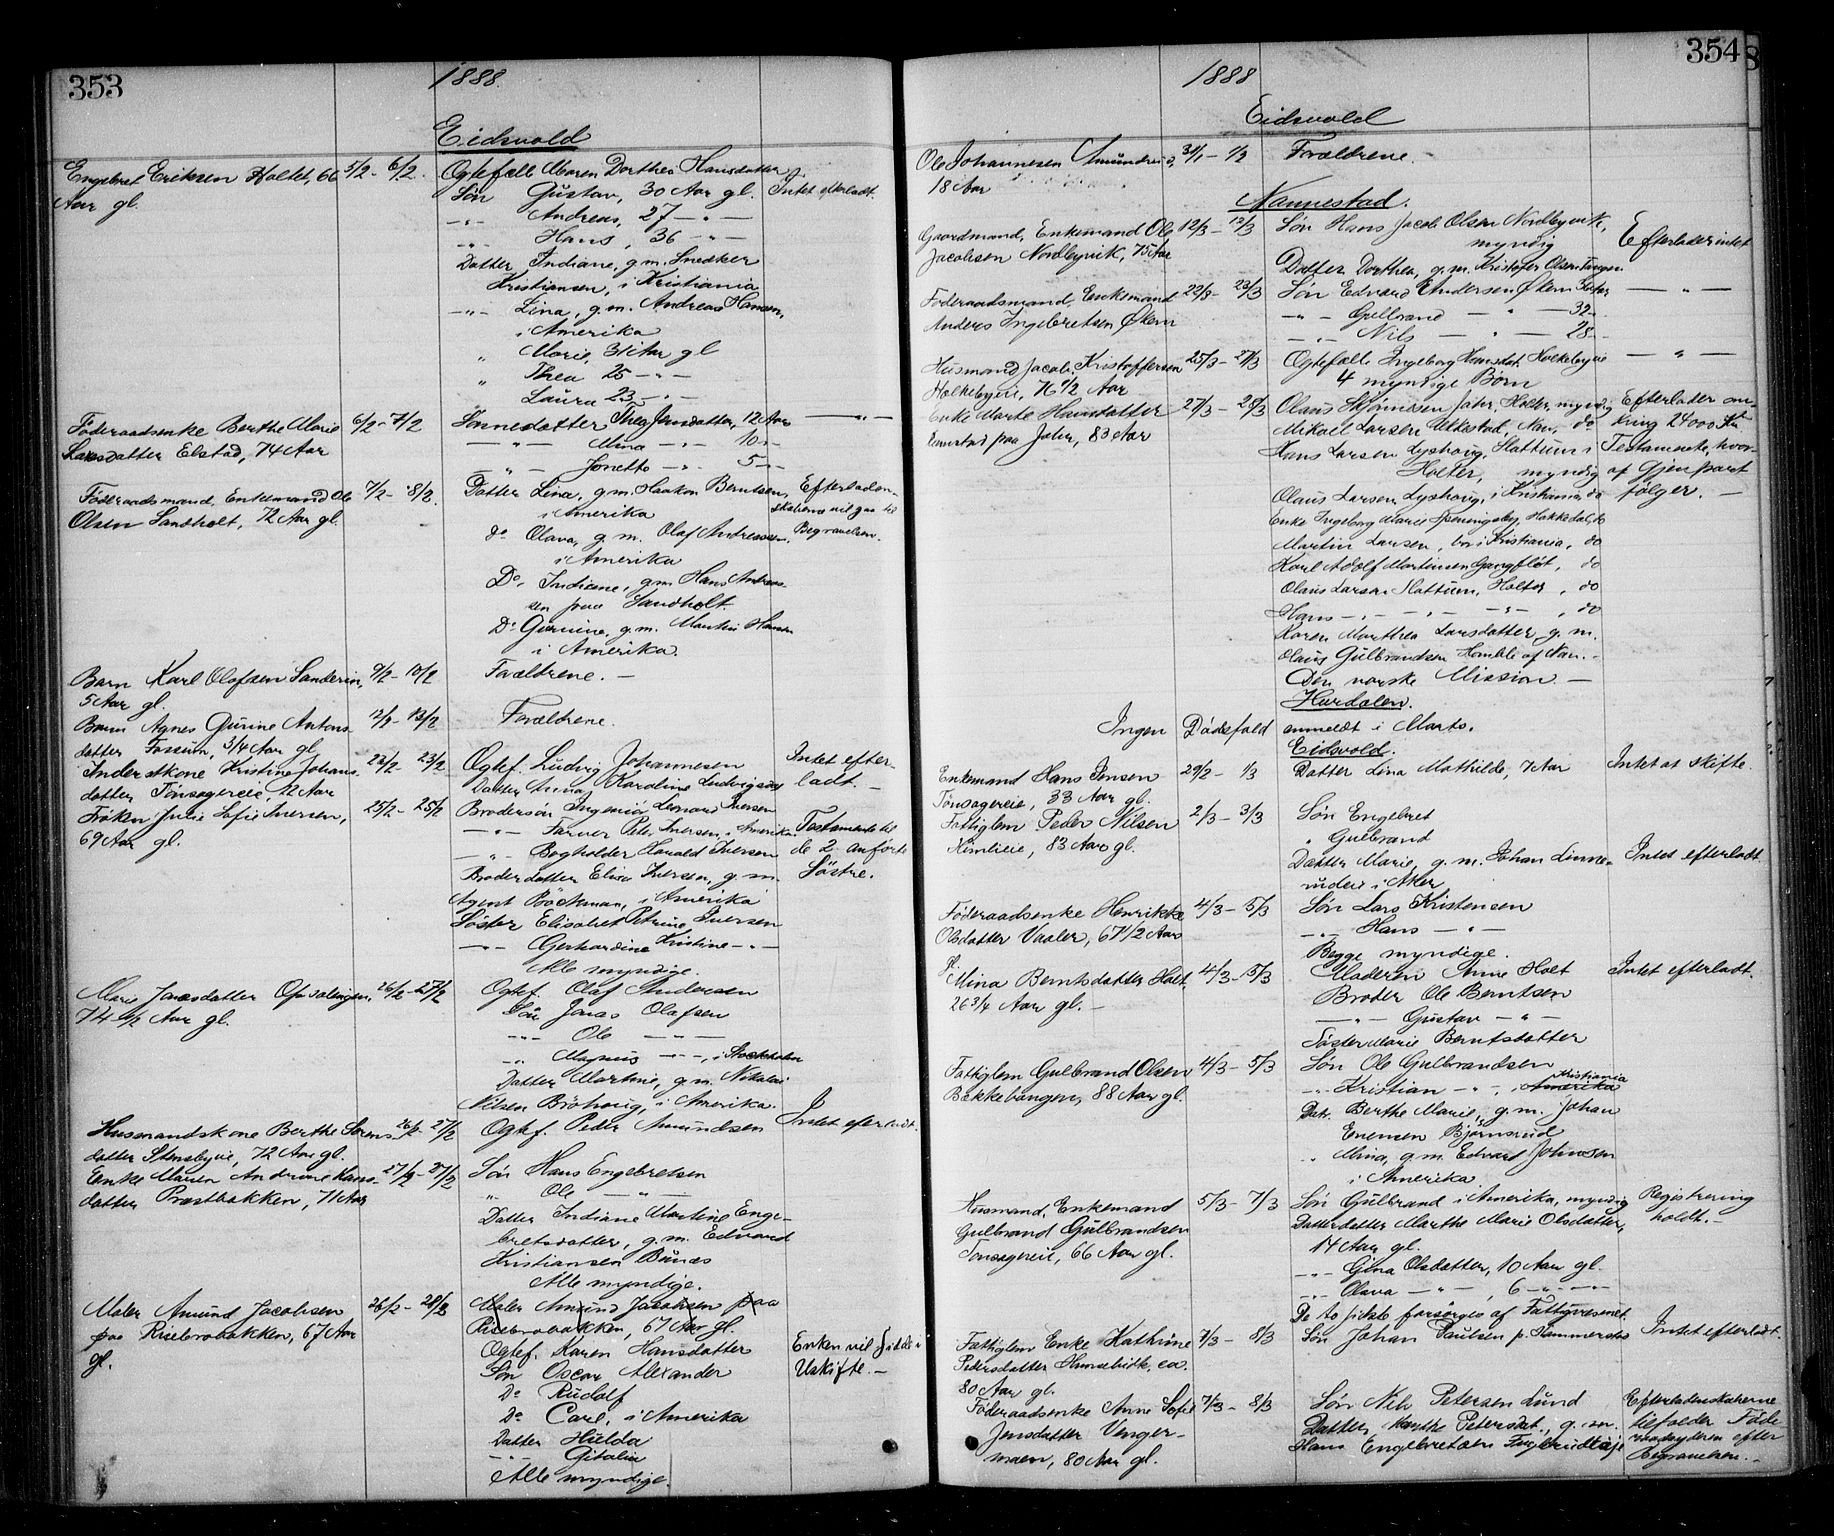 353
1888.
Eidsvold
Engebret Eriksen Holtet, 66 5/2 - 6/2. Ogtefælle Maren Dorthea Hansdatter
Aar gl. Søn Gustav, 30 Aar gl. Intet efterladt.
-"- Andreas, 27 -"-
-"- Hans, 36 -"-
Datter Indiane, g.m. Snedker
Kristiansen, i Kristiania
-"- Lina, g.m. Andreas Hansen,
i Amerika
" Marie, 31 Aar gl
" Thea 25 -"-
" Laura 23 -"-
Föderaadsenke Berthe Marie 6/2 - 7/2 Sønnedatter Thea Jensdatter, 12 Aar -"-
Larsdatter Elstad, 74 Aar -"- Mina -"- 10 -"-
-"- Jonette -"- 5 -"-
Föderaadsmand, Enkemand Ole 7/2 - 8/2. Datter Lina, g.m. Haakon Berntsen, Efterladen-
Olsen Sandholt, 72 Aar gl. i Amerika skaberne vil gaa til
do Olava, g.m. Olaf Andreassen, Begravelsen.
i Amerika
Do Indiane, g.m. Hans Andreas-
sen paa Sandholt
Do Gurine, g.m. Martin Hansen
i Amerika.
Barn Karl Olafsen Sanderin, 9/2 - 10/2 Forældrene. -
5 Aar gl.
Barn Agnes Gurine Antons- 12/2 - 13/2 Forældrene.
datter Fossum, 3/4 Aar gl.
Inderstkone Kristine Johans- 22/2 - 23/2 Ogtef. Ludvig Johannesen Intet efter-
datter Tönsagereie, 72 Aar Datter Anna Karoline Ludvigsdat ladt. -
Fröken Julie Sofie Iversen, 25/2 - 25/2 Brodersön Ingeniör Leonard Iversen
69 Aar gl. -"- Farver Peter Iversen, i Amerika Testamente til
-"- Bogholder Harald Iversen de 2 anförte
Broderdatter Elisa Iversen, g.m. Söstre.
Agent Böckman, i Amerika
Söster Elisabet Petrine Iversen
-"- Gerhardine Kristine -"-
Alle myndige.
Marie Jonasdatter Opsalengen, 26/2 - 27/2 Ogtef. Olaf Andersen
74 1/2 Aar gl. Sön Jonas Olafsen
-"- Ole -"-
-"- Magnus -"-, i Stockholm
Datter Martine, g.m. Nikolai
Nilsen Bröhoug, i Amerika.
Husmandskone Berthe Sorens- 26/2 - 27/2 Ogtef. Peder Amundsen Intet efterladt.
datter Stensbyeie, 72 Aar gl.
Enke Maren Andrine Hans- 27/2 - 27/2 Sön Hans Engebretsen
datter Præstbakken, 71 Aar " Ole -"-
Datter Indiane Martine Enge-
bretsdatter, g.m. Edvard
Kristiansen Bunæs
Alle myndige.
Maler Amund Jacobsen 26/2 - 28/2 Maler Amund Jacobsen paa
paa Risebrobakken, 67 Aar Risebrobakken, 67 Aar gl.
gl. Ogtef. Karen Hansdatter Enken vil sidde i
Sön Oscar Alexander Uskifte. -
Do Rudolf
Do Carl, i Amerika
Datter Hulda
-"- Gitalia
Alle myndige.
354
1888
Eidsvold
Ole Johannesen Amundrud, 31/1 - 1/3 Forældrene.
18 Aar
Nannestad.
Gaardmand, Enkemand Ole 12/3 - 12/3 Søn Hans Jacob Olsen Nordbyvik, Efterlader intet
Jacobsen Nordbyvik, 75 Aar myndig
Datter Dorthea, g.m. Kristofer Olsen Tangen
Föderaadsmand, Enkemand 22/3 - 23/3 Søn Edvard Andersen Økern -"-
Anders Ingebretsen Økern -"- Gulbrand -"- 32 -
-"- Nils -"- 28 -
Husmand Jacob Kristoffersen 25/3 - 27/3 Ogtefælle Ingeborg Hansdat. Holkebyeie -"-
Holkebyeie, 76 1/2 Aar 4 myndige Børn
Enke Marte Hansdatter 27/3 - 28/3 Olaus Jahr, Holter, myndig Efterlader om-
paa Jahr, 83 Aar Mikael Larsen Ulkestad, Nan., do kring 24000 Kr.
Hans Larsen Lyshoug, Slattum i Testamente, hvor-
Holter, myndig af Gjenpart
Olaus Larsen Lyshoug, i Kristiania, do følger. -
Enke Ingeborg Marie Spenningsby, Hakkedal, do
Martin Larsen, bor i Kristiania, do
Karl Adolf Martinsen Gangfløt, do
Olaus Larsen Slattum, Holter, do
Hans -"- -"- -"-, do
Karen Marthea Larsdatter, g.m.
Olaus Gulbrandsen Homble af Nan. -
Den norske Mission. -
Hurdalen.
Ingen Dödsfald anmeldt i Marts.
Eidsvold.
Enkemand Hans Jensen 29/2 - 1/3 Datter Lina Mathilde, 7 Aar Intet at skifte.
Tönsagereie, 33 Aar gl.
Fattiglem Peder Nilsen 2/3 - 3/3 Sön Engebret
Himlieie, 83 Aar gl. " Gulbrand
Datter Marie, g.m. Johan Linne- Intet efterladt.
rudeie i Aker
Föderaadsenke Henrikke 4/3 - 5/3 Sön Lars Kristensen
Olsdatter Vaaler, 67 1/2 Aar -"- Hans -"-
gl. Begge myndige.
Mina Berntsdatter Holt, 4/3 - 5/3 Moderen Anne Holt Intet efterladt.
26 3/4 Aar gl. - Broder Ole Berntsen
-"- Gustav -"-
Söster Marie Berntsdatter
Fattiglem Gulbrand Olsen 4/3 - 5/3 Sön Ole Gulbrandsen
Bakkevangen, 88 Aar gl. -"- Kristian -"-, Amerika Kristiania
Datr. Berthe Marie, g.m. Johan
Evensen Björnsrud
" Mina, g.m. Edvard Johnsen
i Amerika
Husmand, Enkemand 5/3 - 7/3 Sön Gulbrand i Amerika, myndig Registrering
Gulbrand Gulbrandsen Datterdatter Marthe Marie Olsdatter, holdt. -
Tonsagereie, 66 Aar gl. 14 Aar gl.
-"- Gina Olsdatter, 10 Aar gl.
-"- Olava -"-, 6 -"-
De to sidste forsörges af Fattigvæsenet.
Fattiglem Enke Kathrine 7/3 - 8/3 Sön Johan Paulsen p. Hammerstad Intet efterladt.
Pedersdatter Hunsebidt, ca.
80 Aar gl.
Föderaadsenke Anne Sofie 7/3 - 8/3 Sön Nils Petersen Lund Efterladenskaberne
Jensdatter Venger- Datter Marthe Petersdat., g.m. tilfalder Föde-
moen, 80 Aar gl. Hans Engebretsen raadsyderen efter
Begravelsen. -